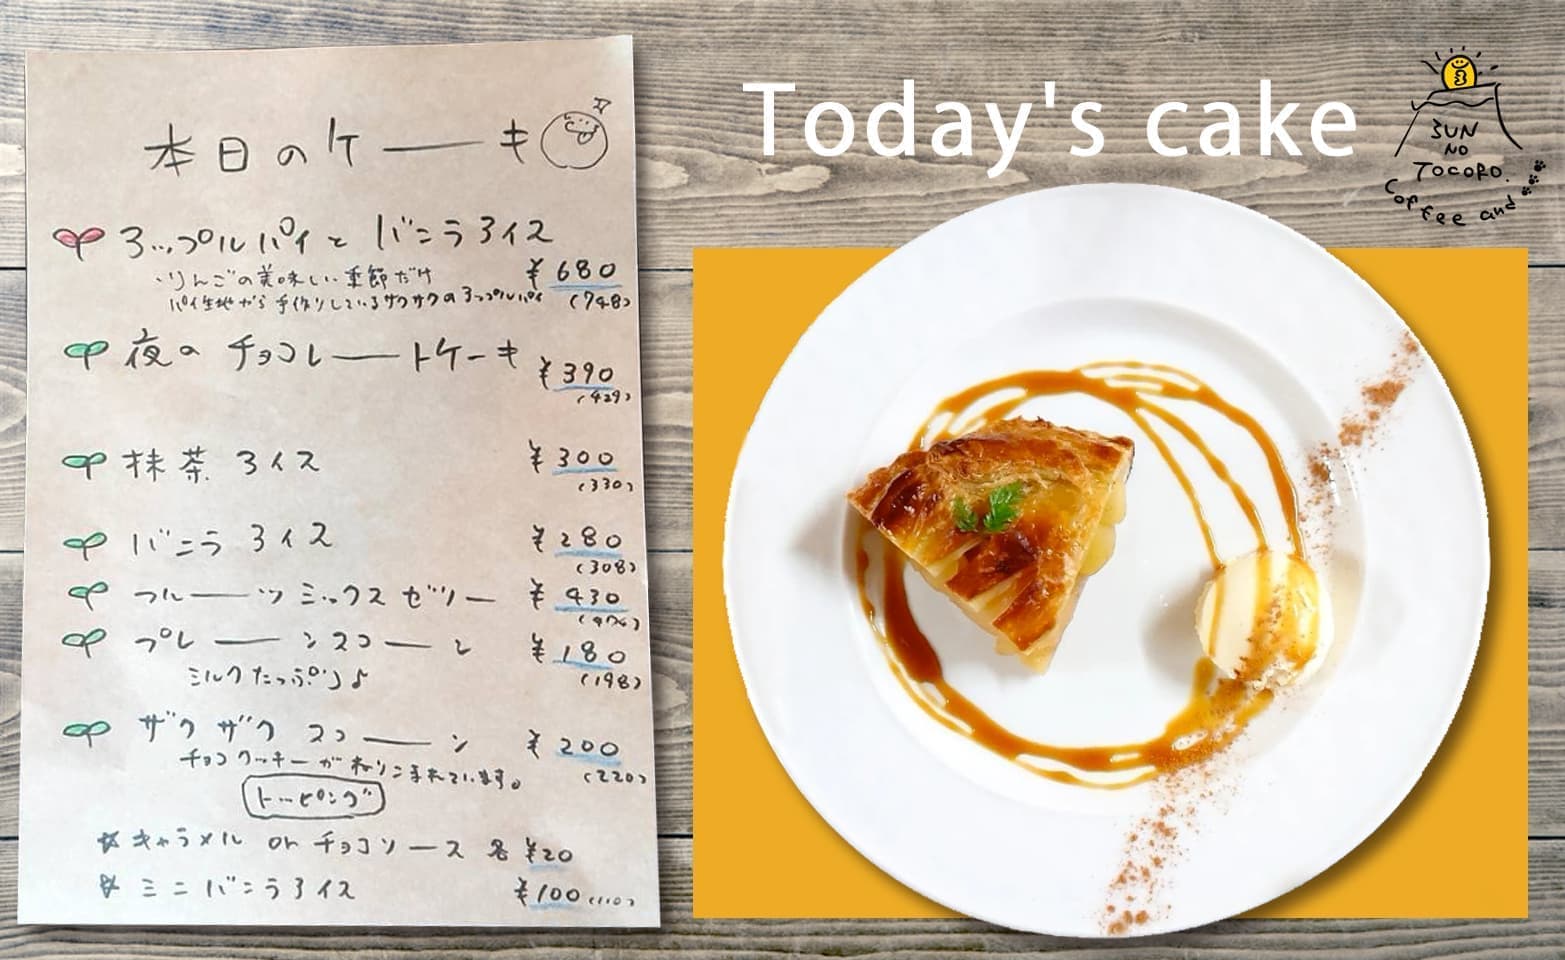 本日のケーキ
アップルパイとバニラアイス
りんごの美味しい季節だけ
¥680
パイ生地から手作りしているサクサクのアップルパイ
(748)
夜のチョコレートケーキ
¥390
(429)
抹茶アイス
¥300
(330)
バニラアイス
¥280
(308)
フルーツミックスゼリー
¥430
プレーンスコーン
¥180
ミルクたっぷり♪
(198)
ザクザクスコーン
¥200
チョコクッキーがねりこまれています。
(220)
トッピング
キャラメル or チョコソース 各 ¥20
ミニバニラアイス
¥100 (110)
Today's cake
SUN
NO
TOCORO.
Coffee and